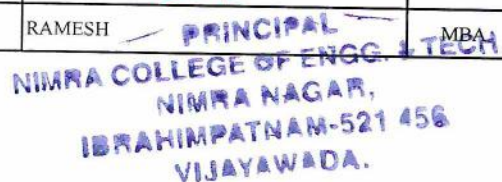 RAMESH PRINCIPAL MBA
NIMRA COLLEGE OF ENGG. & TECH
NIMRA NAGAR,
IBRAHIMPATNAM-521 456
VIJAYAWADA.